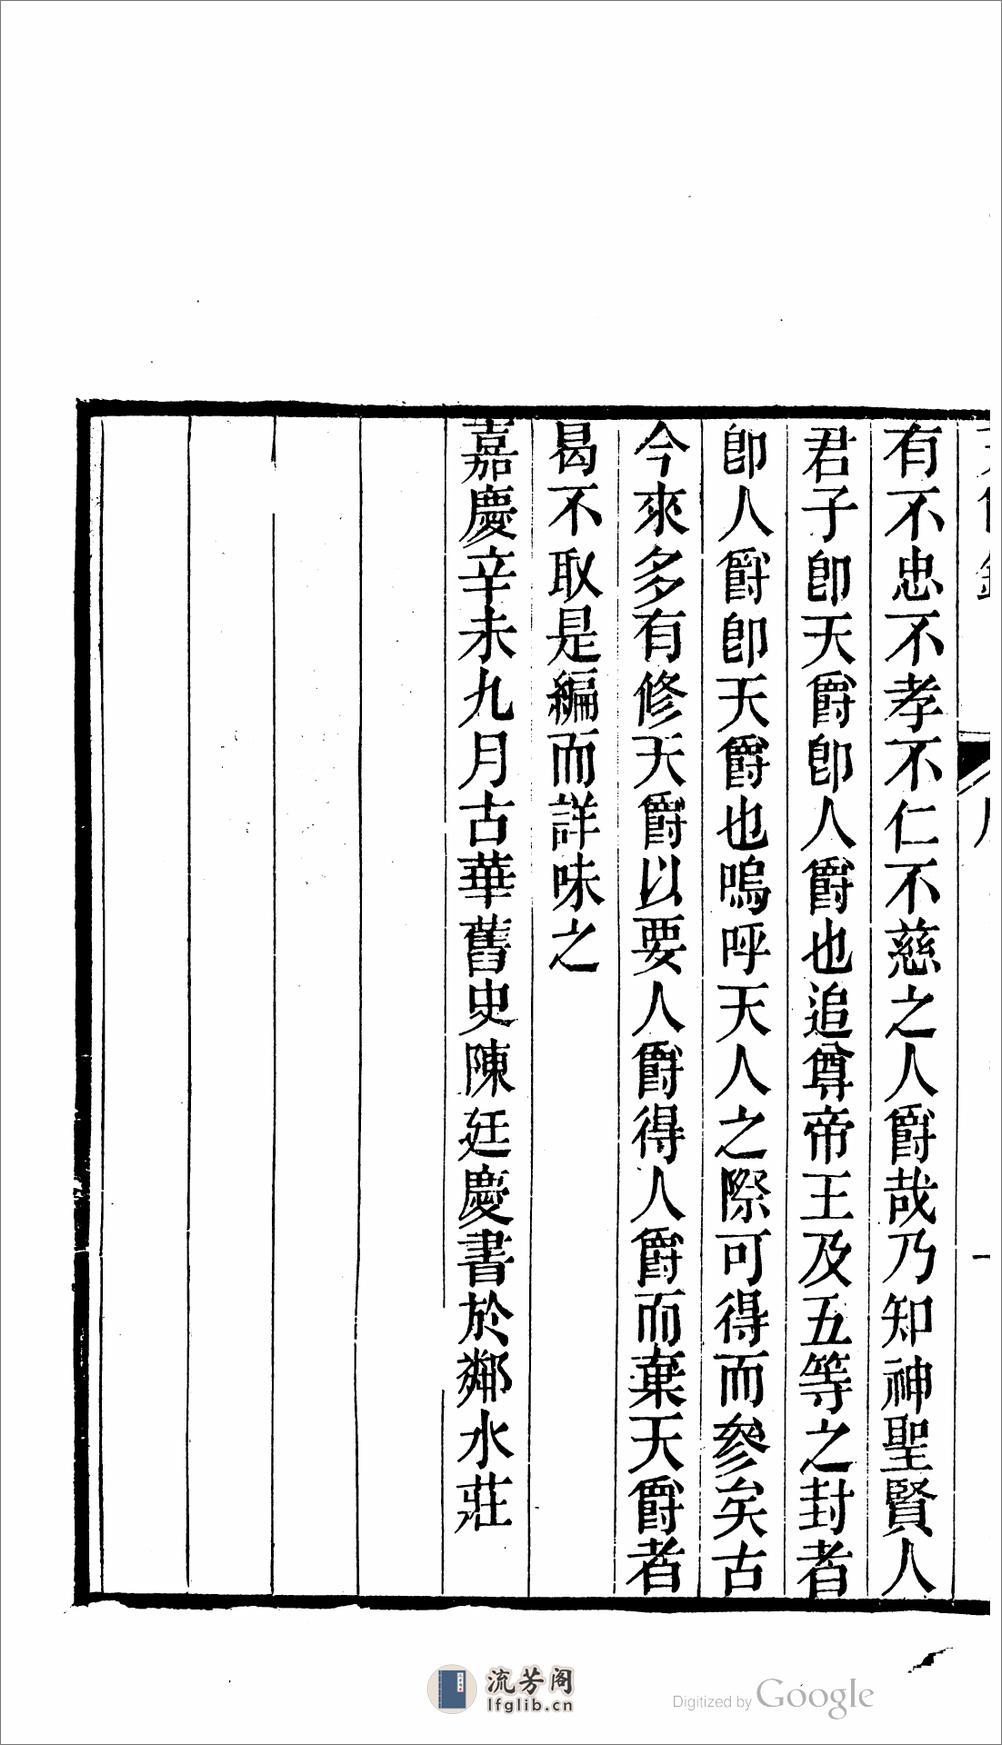 有不忠不孝不仁不慈之人爵哉乃知神聖賢人
君子卽天爵卽人爵也追尊帝王及五等之封者
卽人爵卽天爵也嗚呼天人之際可得而參矣古
今來多有修天爵以要人爵得人爵而棄天爵者
曷不取是編而詳味之
嘉慶辛未九月古華舊史陳廷慶書於鄰水莊
流芳阁
lfglib.cn
Digitized by Google